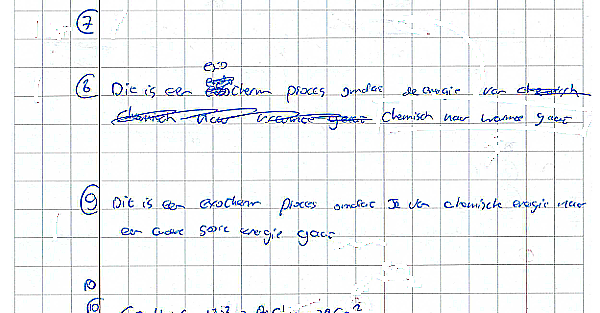 7
exo
8 Dit is een cherm proces omdat de energie van chemisch
chemisch naar warmte gaat chemisch naar warmte gaat
9 Dit is een exotherm proces omdat Je van chemische energie naar
een andere soort energie gaat
10
10